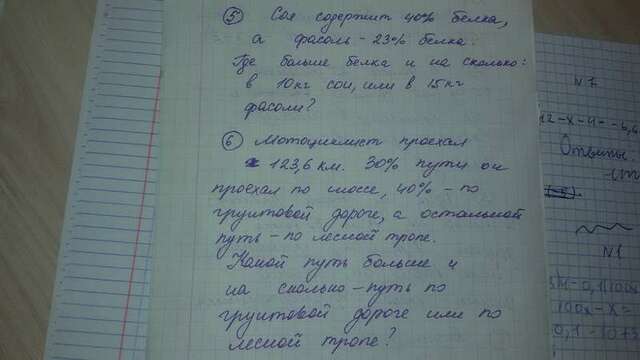 5 Соя содержит 40% белка,
а фасоль - 23% белка.
Где больше белка и на сколько:
в 10 кг сои, или в 15 кг
фасоли?
6 Мотоциклист проехал
123,6 км. 30% пути он
проехал по шоссе, 40% - по
грунтовой дороге, а остальной
путь - по лесной тропе.
Какой путь больше и
на сколько - путь по
грунтовой дороге или по
лесной тропе?
N 7
Ответы
N1